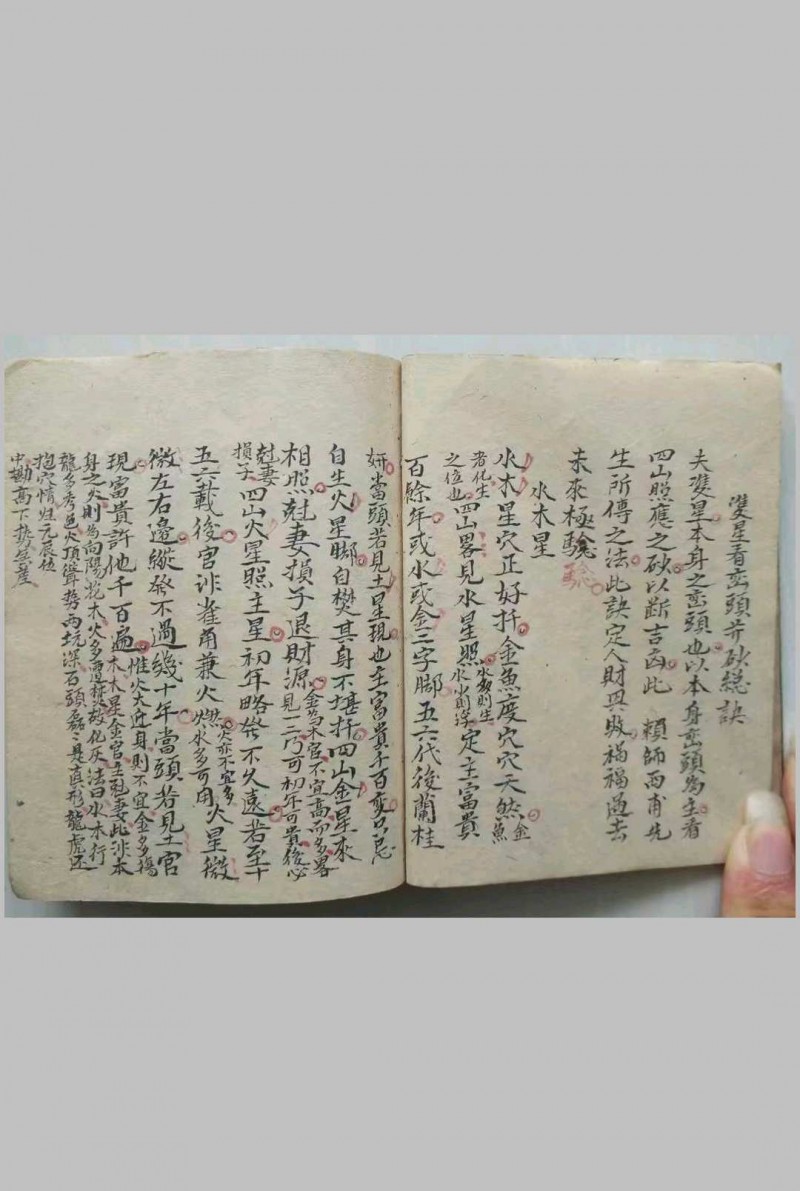 雙星看巒頭并砂總訣
夫雙星本身之巒頭也以本身巒頭為主看
四山照應之砂以断吉凶此 賴師西甫先
生所傳之法此訣定人財興敗禍福過去
未來極驗
驗
水木星
水木星穴正好扦金魚度穴穴天然金魚
者化生之位也四山畧見水星照水多則生 定主富貴
百餘年或水或金三字脚五六代後蘭桂
妍當頭若見土星現也主富貴千百 只忌
自生火星脚自焚其身不堪扦四山金星來
相照尅妻損子退財源金為木官不宜高而多畧見一二乃可初年可貴後必
尅妻損子四山火星照主星初年略發不久遠若至十
五六載後官非雀角兼火燃火亦不宜多水多可用火星微
微左右邊縱發不過幾十年當頭若見土官
現富貴許他千百遍木木星金官主尅妻此非本
惟火大近身則不宜金多傷
身之火則為向陽花木火多 遭焚故化灰法曰水木行
龍多秀邑火頂聳勢两坑深百頭磊々是真形龍虎还
抱穴情归元辰位
中勘高下